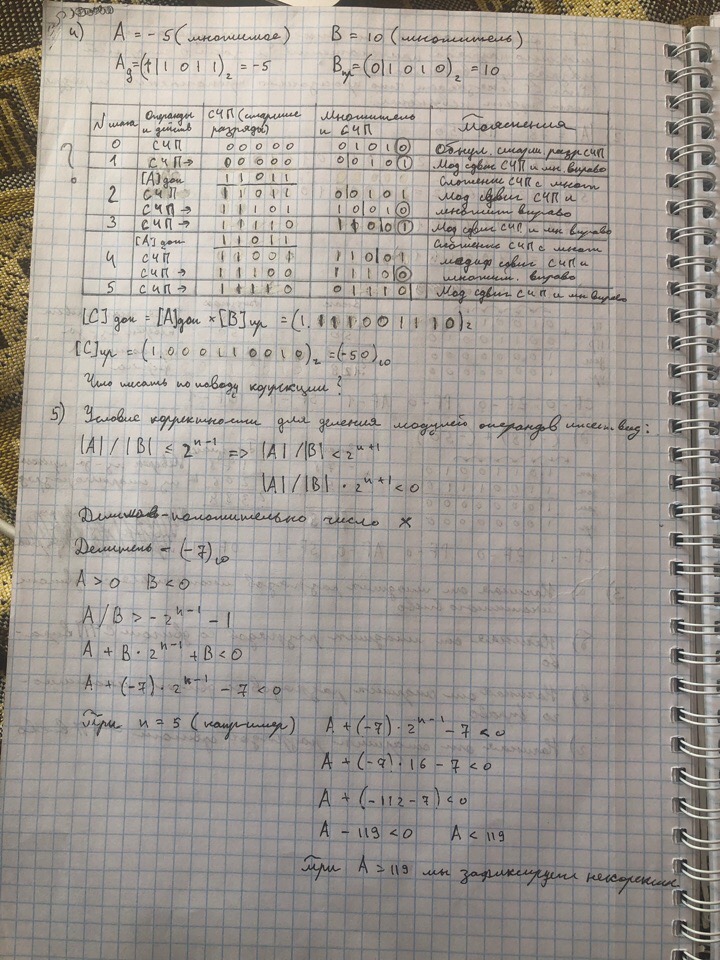 4) A = -5 (множимое) B = 10 (множитель)
Aд = (1|1 0 1 1)₂ = -5 Bпр = (0|1 0 1 0)₂ = 10
N шага Операнды и действ СЧП (старшие разряды) Множитель и СЧП Пояснения
0 СЧП 0 0 0 0 0 0 1 0 1 0 Обнул. старш разр СЧП
1 СЧП → 0 0 0 0 0 0 0 1 0 1 Мод сдвиг СЧП и мн. вправо
?
[A]доп 1 1 0 1 1 Сложение СЧП с множ
2 СЧП 1 1 0 1 1 0 0 1 0 1 Мод сдвиг СЧП и
СЧП → 1 1 1 0 1 1 0 0 1 0 множит вправо
3 СЧП → 1 1 1 1 0 1 1 0 0 1 Мод сдвиг СЧП и мн вправо
[A]доп 1 1 0 1 1 Сложение СЧП с множ
4 СЧП 1 1 0 0 1 1 1 0 0 1 модиф сдвиг СЧП и
СЧП → 1 1 1 0 0 1 1 1 0 0 множит. вправо
5 СЧП → 1 1 1 1 0 0 1 1 1 0 Мод сдвиг СЧП и мн вправо
[C]доп = [A]доп × [B]пр = (1. 1 1 1 0 0 1 1 1 0)₂
[C]пр = (1. 0 0 0 1 1 0 0 1 0)₂ = (-50)₁₀
Что писать по поводу коррекции?
5) Условие корректности для деления модулей операндов имеет вид:
|A| / |B| ≤ 2ⁿ⁻¹ => |A| / |B| < 2ⁿ⁺¹
|A| / |B| · 2ⁿ⁺¹ < 0
Делимое - положительно число x
Делитель - (-7)₁₀
A > 0 B < 0
A / B > - 2ⁿ⁻¹ - 1
A + B · 2ⁿ⁻¹ + B < 0
A + (-7) · 2ⁿ⁻¹ - 7 < 0
При n = 5 (например) A + (-7) · 2ⁿ⁻¹ - 7 < 0
A + (-7) · 16 - 7 < 0
A + (-112 - 7) < 0
A - 119 < 0 A < 119
При A = 119 мы зафиксируем некоррекнт